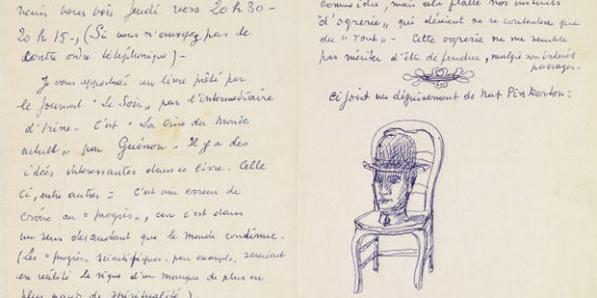 nous vous vois Jeudi vers 20 h 30 -
20 h 15 -, (Si vous n'envoyez pas de
contre ordre téléphonique) -
Je vous apporterai un livre prêté par
le Journal "Le Soir" par l'intermédiaire
d'Irène. C'est "La Crise du Monde
actuel" par Guénon. Il y a des
idées intéressantes dans ce livre. Celle
ci, entre autres = c'est une erreur de
croire au "progrès", car c'est dans
un sens descendant que le monde continue.
(Les "progrès" scientifiques par exemple, seraient
en réalité le signe d'un manque de plus en
plus grand de spiritualité)
mais cela flatte nos instincts
"d'ogrerie", qui désirent ne se contenter que
du "Tout" - Cette ogrerie ne me semble
pas mériter d'être défendue, malgré son intérêt
passager.
Ci joint un déguisement de Nat Pinkerton :